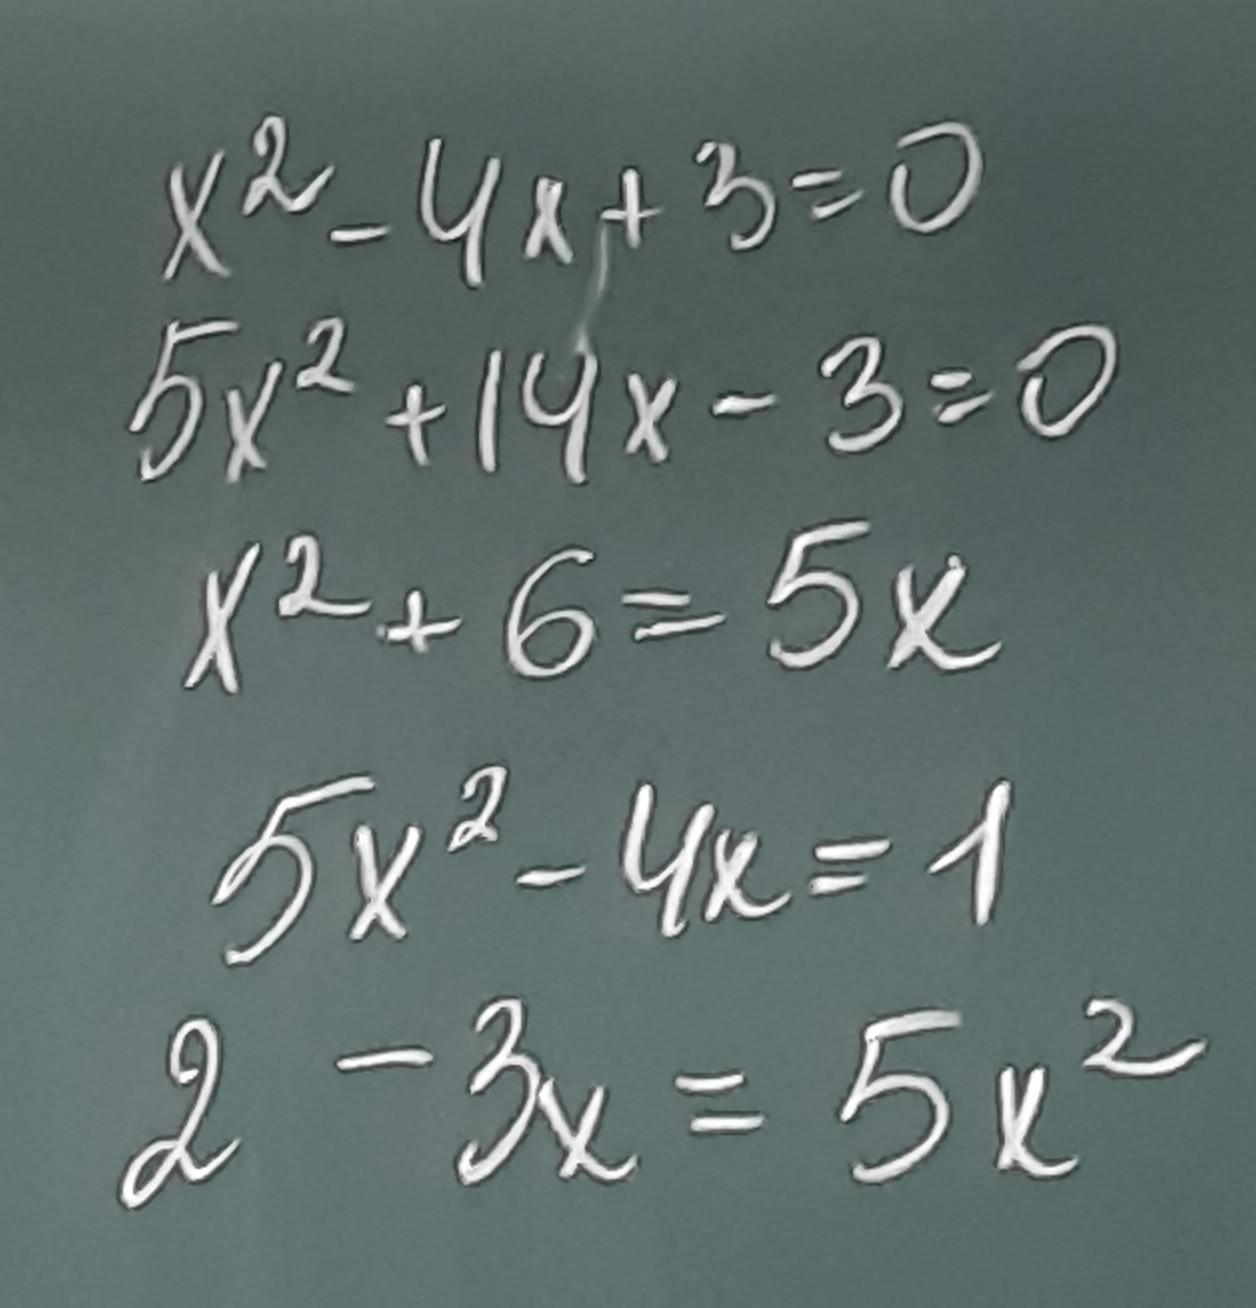 x² - 4x + 3 = 0
5x² + 14x - 3 = 0
x² + 6 = 5x
5x² - 4x = 1
2 - 3x = 5x²